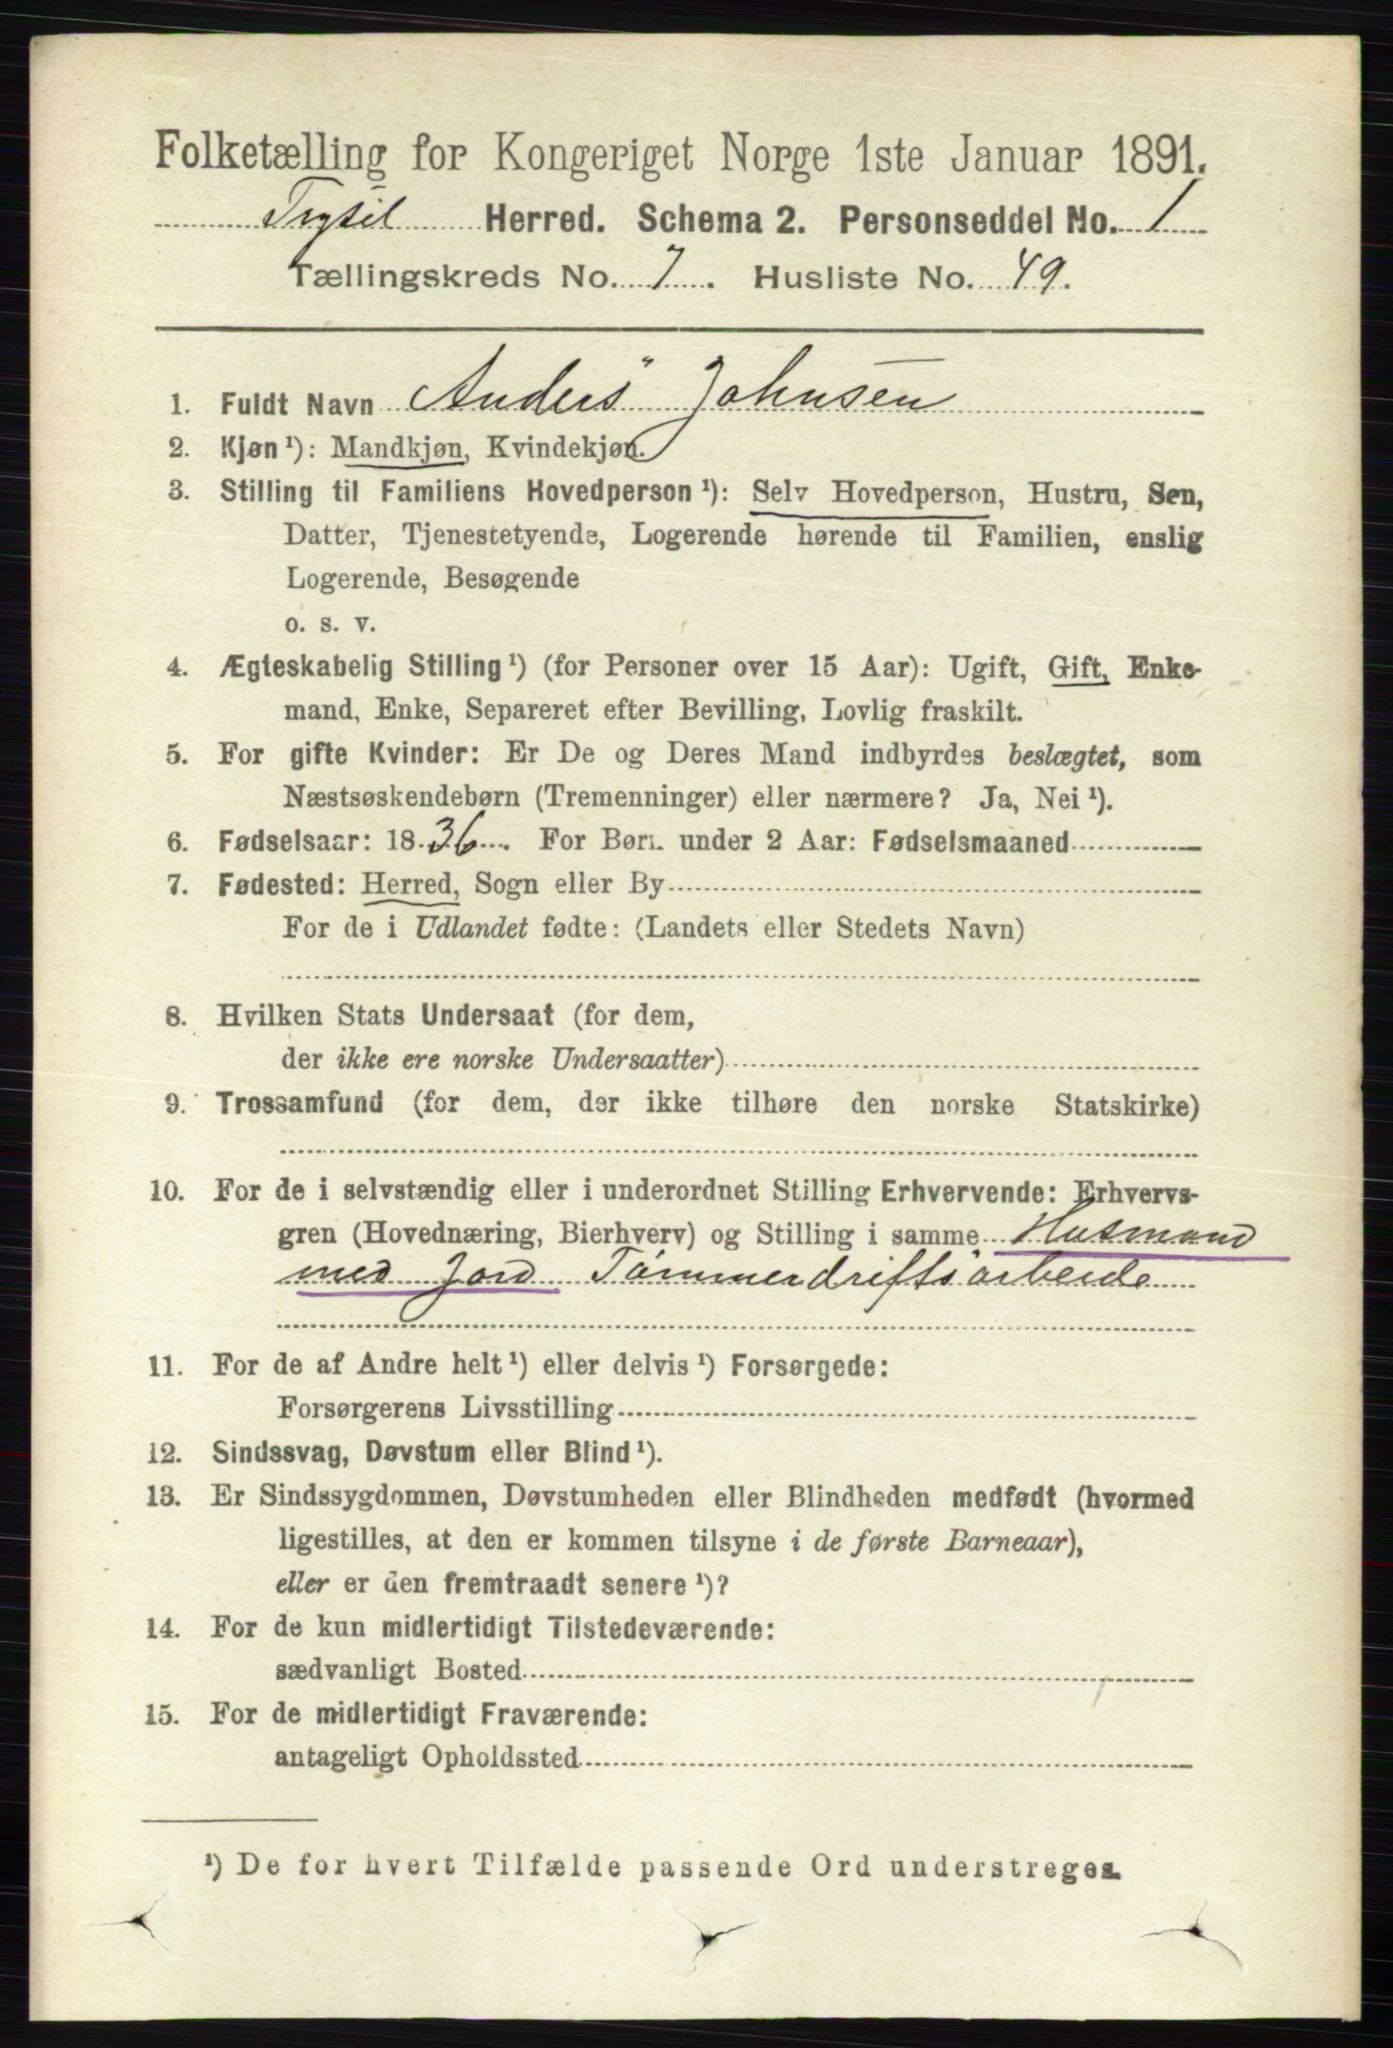 Folketælling for Kongeriget Norge 1ste Januar 1891.
Trysil Herred. Schema 2. Personseddel No. 1
Tællingskreds No. 7. Husliste No. 49.
1. Fuldt Navn Anders Johnsen
2. Kjøn ¹): Mandkjøn, Kvindekjøn.
3. Stilling til Familiens Hovedperson ¹): Selv Hovedperson, Hustru, Søn,
Datter, Tjenestetyende, Logerende hørende til Familien, enslig
Logerende, Besøgende
o. s. v.
4. Ægteskabelig Stilling ¹) (for Personer over 15 Aar): Ugift, Gift, Enke-
mand, Enke, Separeret efter Bevilling, Lovlig fraskilt.
5. For gifte Kvinder: Er De og Deres Mand indbyrdes beslægtet, som
Næstsøskendebørn (Tremenninger) eller nærmere? Ja, Nei ¹).
6. Fødselsaar: 1836. For Børn under 2 Aar: Fødselsmaaned
7. Fødested: Herred, Sogn eller By
For de i Udlandet fødte: (Landets eller Stedets Navn)
8. Hvilken Stats Undersaat (for dem,
der ikke ere norske Undersaatter)
9. Trossamfund (for dem, der ikke tilhøre den norske Statskirke)
10. For de i selvstændig eller i underordnet Stilling Erhvervende: Erhvervs-
gren (Hovednæring, Bierhverv) og Stilling i samme Husmand
med Jord Tømmerdriftsarbeide
11. For de af Andre helt ¹) eller delvis ¹) Forsørgede:
Forsørgerens Livsstilling
12. Sindssvag, Døvstum eller Blind ¹).
13. Er Sindssygdommen, Døvstumheden eller Blindheden medfødt (hvormed
ligestilles, at den er kommen tilsyne i de første Barneaar),
eller er den fremtraadt senere ¹)?
14. For de kun midlertidigt Tilstedeværende:
sædvanligt Bosted
15. For de midlertidigt Fraværende:
antageligt Opholdssted
¹) De for hvert Tilfælde passende Ord understreges.